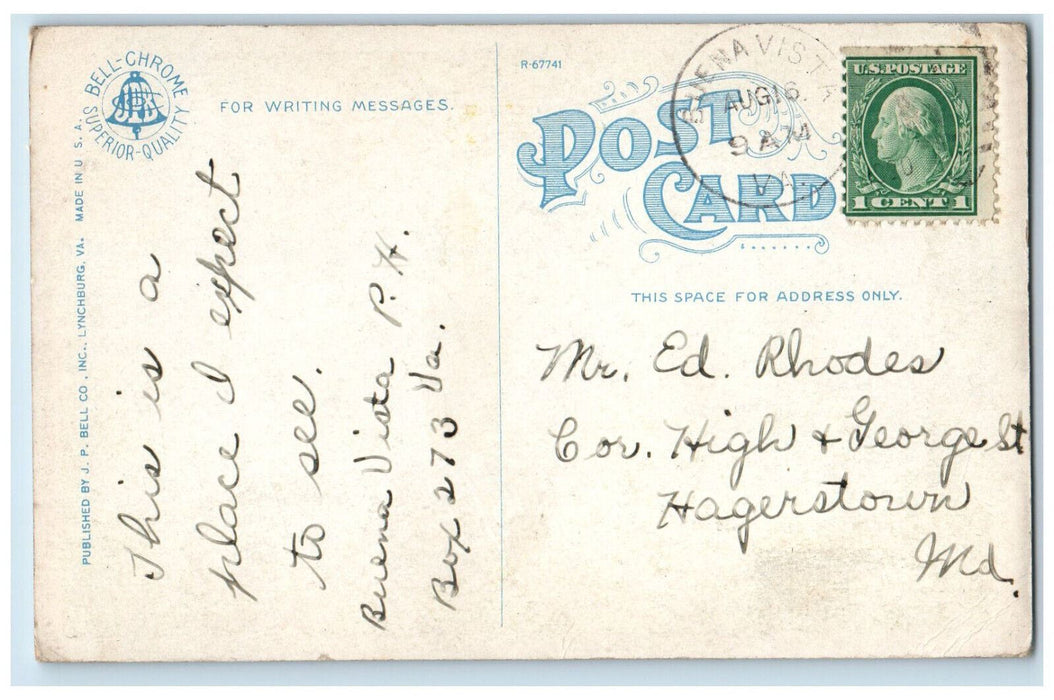 BELL-CHROME
SUPERIOR-QUALITY
JPB
FOR WRITING MESSAGES.
PUBLISHED BY J. P. BELL CO., INC., LYNCHBURG, VA. MADE IN U. S. A.
This is a
place I expect
to see.
Buena Vista P. H.
Box 273 Va.
R-67741
POST
CARD
BUENA VISTA
AUG 16
9 AM
VA.
U.S. POSTAGE
1 CENT 1
THIS SPACE FOR ADDRESS ONLY.
Mr. Ed. Rhodes
Cor. High & George St
Hagerstown
Md.